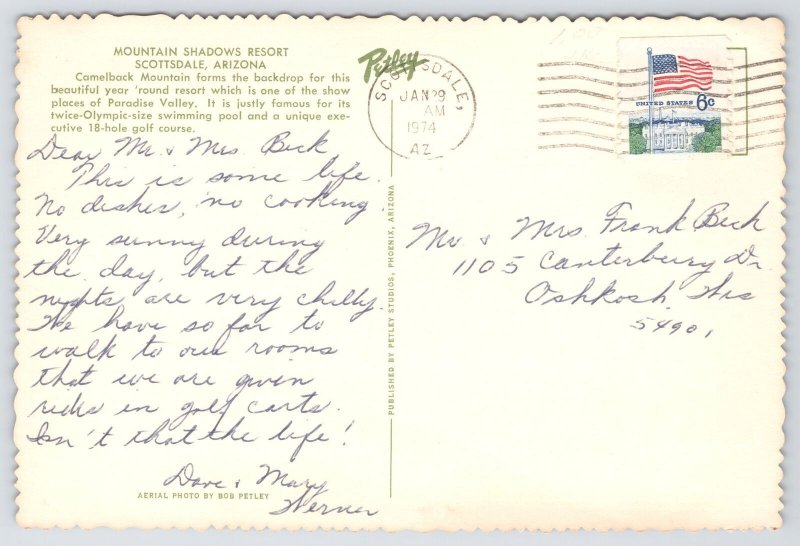 MOUNTAIN SHADOWS RESORT
SCOTTSDALE, ARIZONA
Camelback Mountain forms the backdrop for this
beautiful year 'round resort which is one of the show
places of Paradise Valley. It is justly famous for its
twice-Olympic-size swimming pool and a unique exe-
cutive 18-hole golf course.
Dear Mr. & Mrs. Beck
This is some life.
No dishes, no cooking.
Very sunny during
the day, but the
nights are very chilly.
We have so far to
walk to our rooms
that we are given
rides in golf carts.
Isn't that the life!
Dave & Mary
Werner
AERIAL PHOTO BY BOB PETLEY
PUBLISHED BY PETLEY STUDIOS, PHOENIX, ARIZONA
Petley
SCOTTSDALE,
JAN 29
AM
1974
AZ
UNITED STATES 6c
Mr. & Mrs. Frank Beck
1105 Canterbury Dr.
Oshkosh, Wis
54901